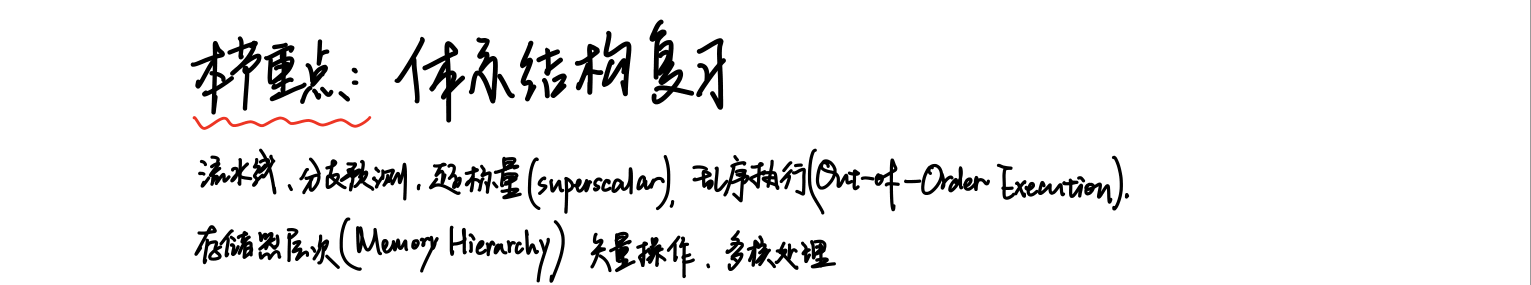 本节重点: 体系结构复习
流水线、分支预测, 超标量(superscalar), 乱序执行(Out-of-Order Execution).
存储器层次(Memory Hierarchy) 矢量操作. 多核处理